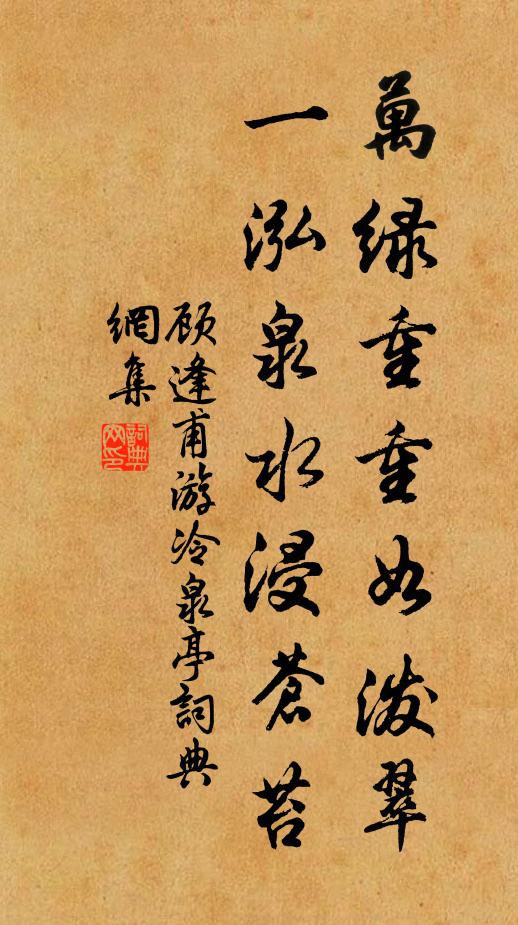 萬緑重重如潑翠
一泓泉水浸蒼苔
顾逢甫游冷泉亭詞典
網集
詞典
网印